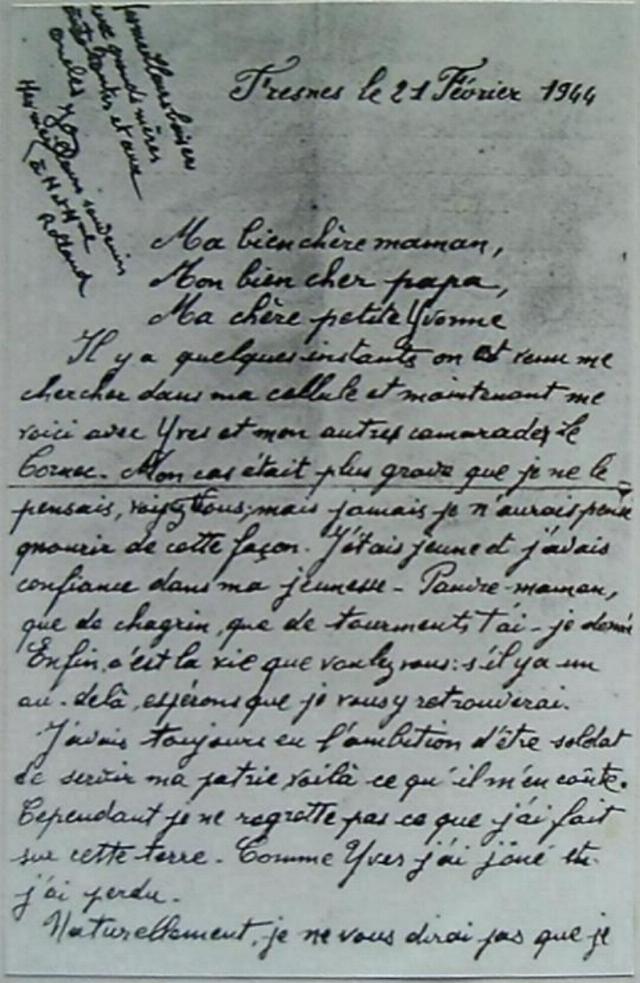 mes meilleurs baisers
aux grands mères
tantes et aux
oncles
Meilleurs souvenirs
à Mr et Mme
Rolland
Fresnes le 21 Février 1944
Ma bien chère maman,
Mon bien cher papa,
Ma chère petite Yvonne
Il y a quelques instants on est venu me
chercher dans ma cellule et maintenant me
voici avec Yves et mon autres camarades Le
Cornec. Mon cas était plus grave que je ne le
pensais, voyez vous, mais jamais je n'aurais pensé
mourir de cette façon. J'étais jeune et j'avais
confiance dans ma jeunesse - Pauvre maman,
que de chagrin, que de tourments t'ai-je donné
Enfin, c'est la vie que voulez vous: s'il y a un
au-delà, espérons que je vous y retrouverai.
J'avais toujours eu l'ambition d'être soldat
de servir ma patrie voilà ce qu'il m'en coûte.
Cependant je ne regrette pas ce que j'ai fait
sur cette terre - Comme Yves j'ai joué et
j'ai perdu.
Naturellement, je ne vous dirai pas que je